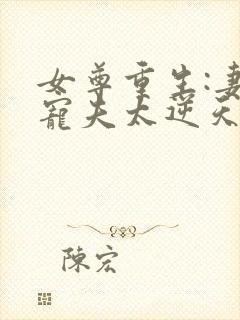 女尊重生:妻
寵夫太逆天
陳宏